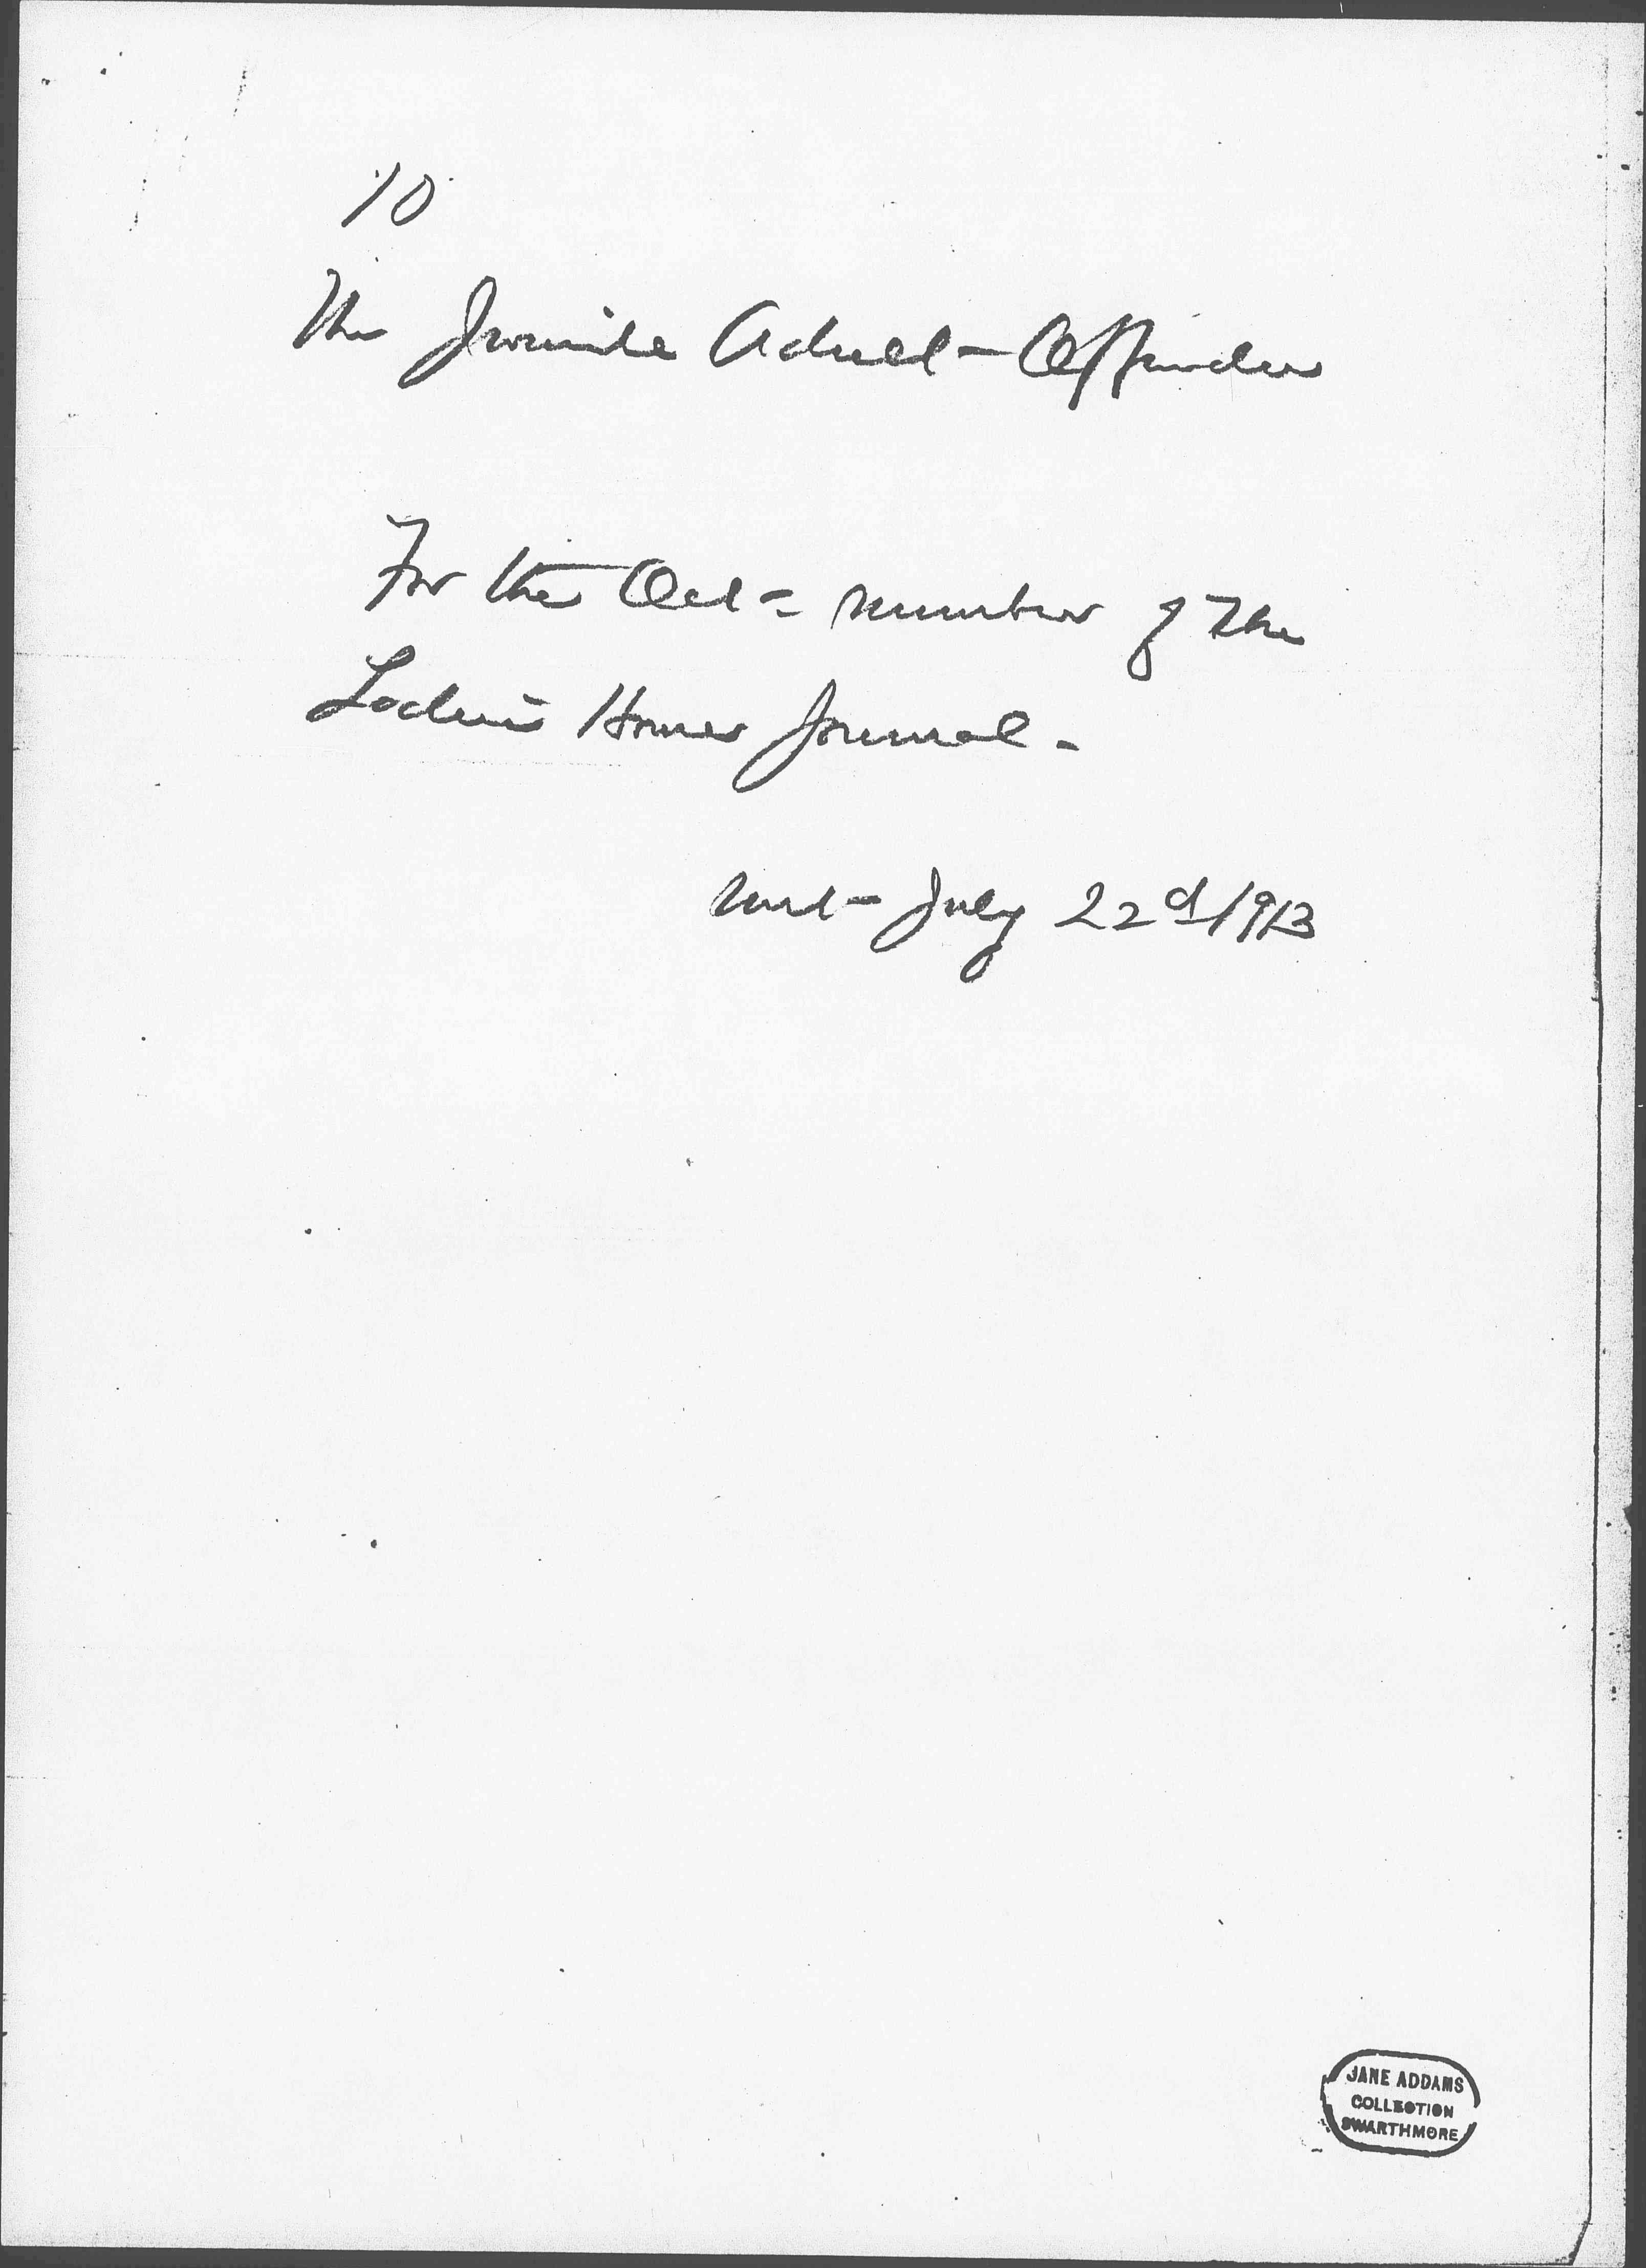 10
The Juvenile Adult-Offender
For the Oct- number of the
Ladies Home Journal-
sent- July 22d/1913
JANE ADDAMS
COLLECTION
SWARTHMORE